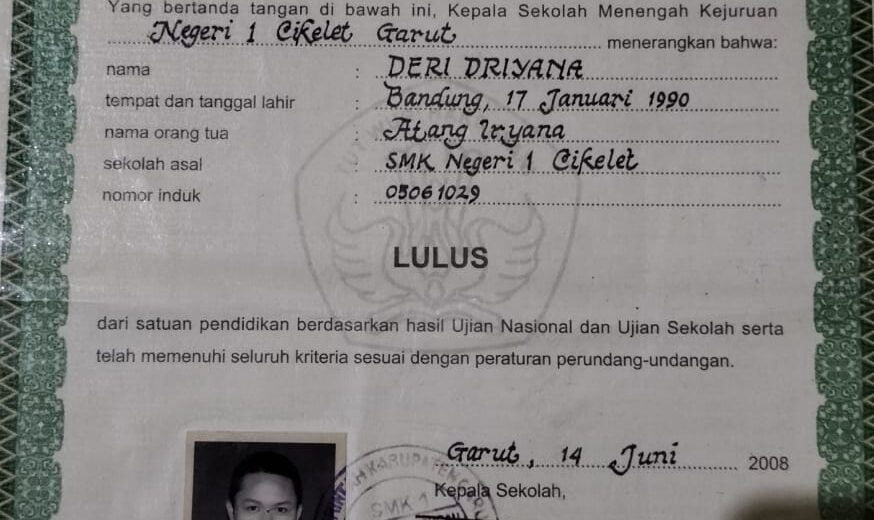 Yang bertanda tangan di bawah ini, Kepala Sekolah Menengah Kejuruan
Negeri 1 Cikelet Garut menerangkan bahwa:
nama : DERI DRIYANA
tempat dan tanggal lahir : Bandung, 17 Januari 1990
nama orang tua : Atang Iryana
sekolah asal : SMK Negeri 1 Cikelet
nomor induk : 05061029
LULUS
dari satuan pendidikan berdasarkan hasil Ujian Nasional dan Ujian Sekolah serta
telah memenuhi seluruh kriteria sesuai dengan peraturan perundang-undangan.
Garut, 14 Juni 2008
Kepala Sekolah,
SMK 1